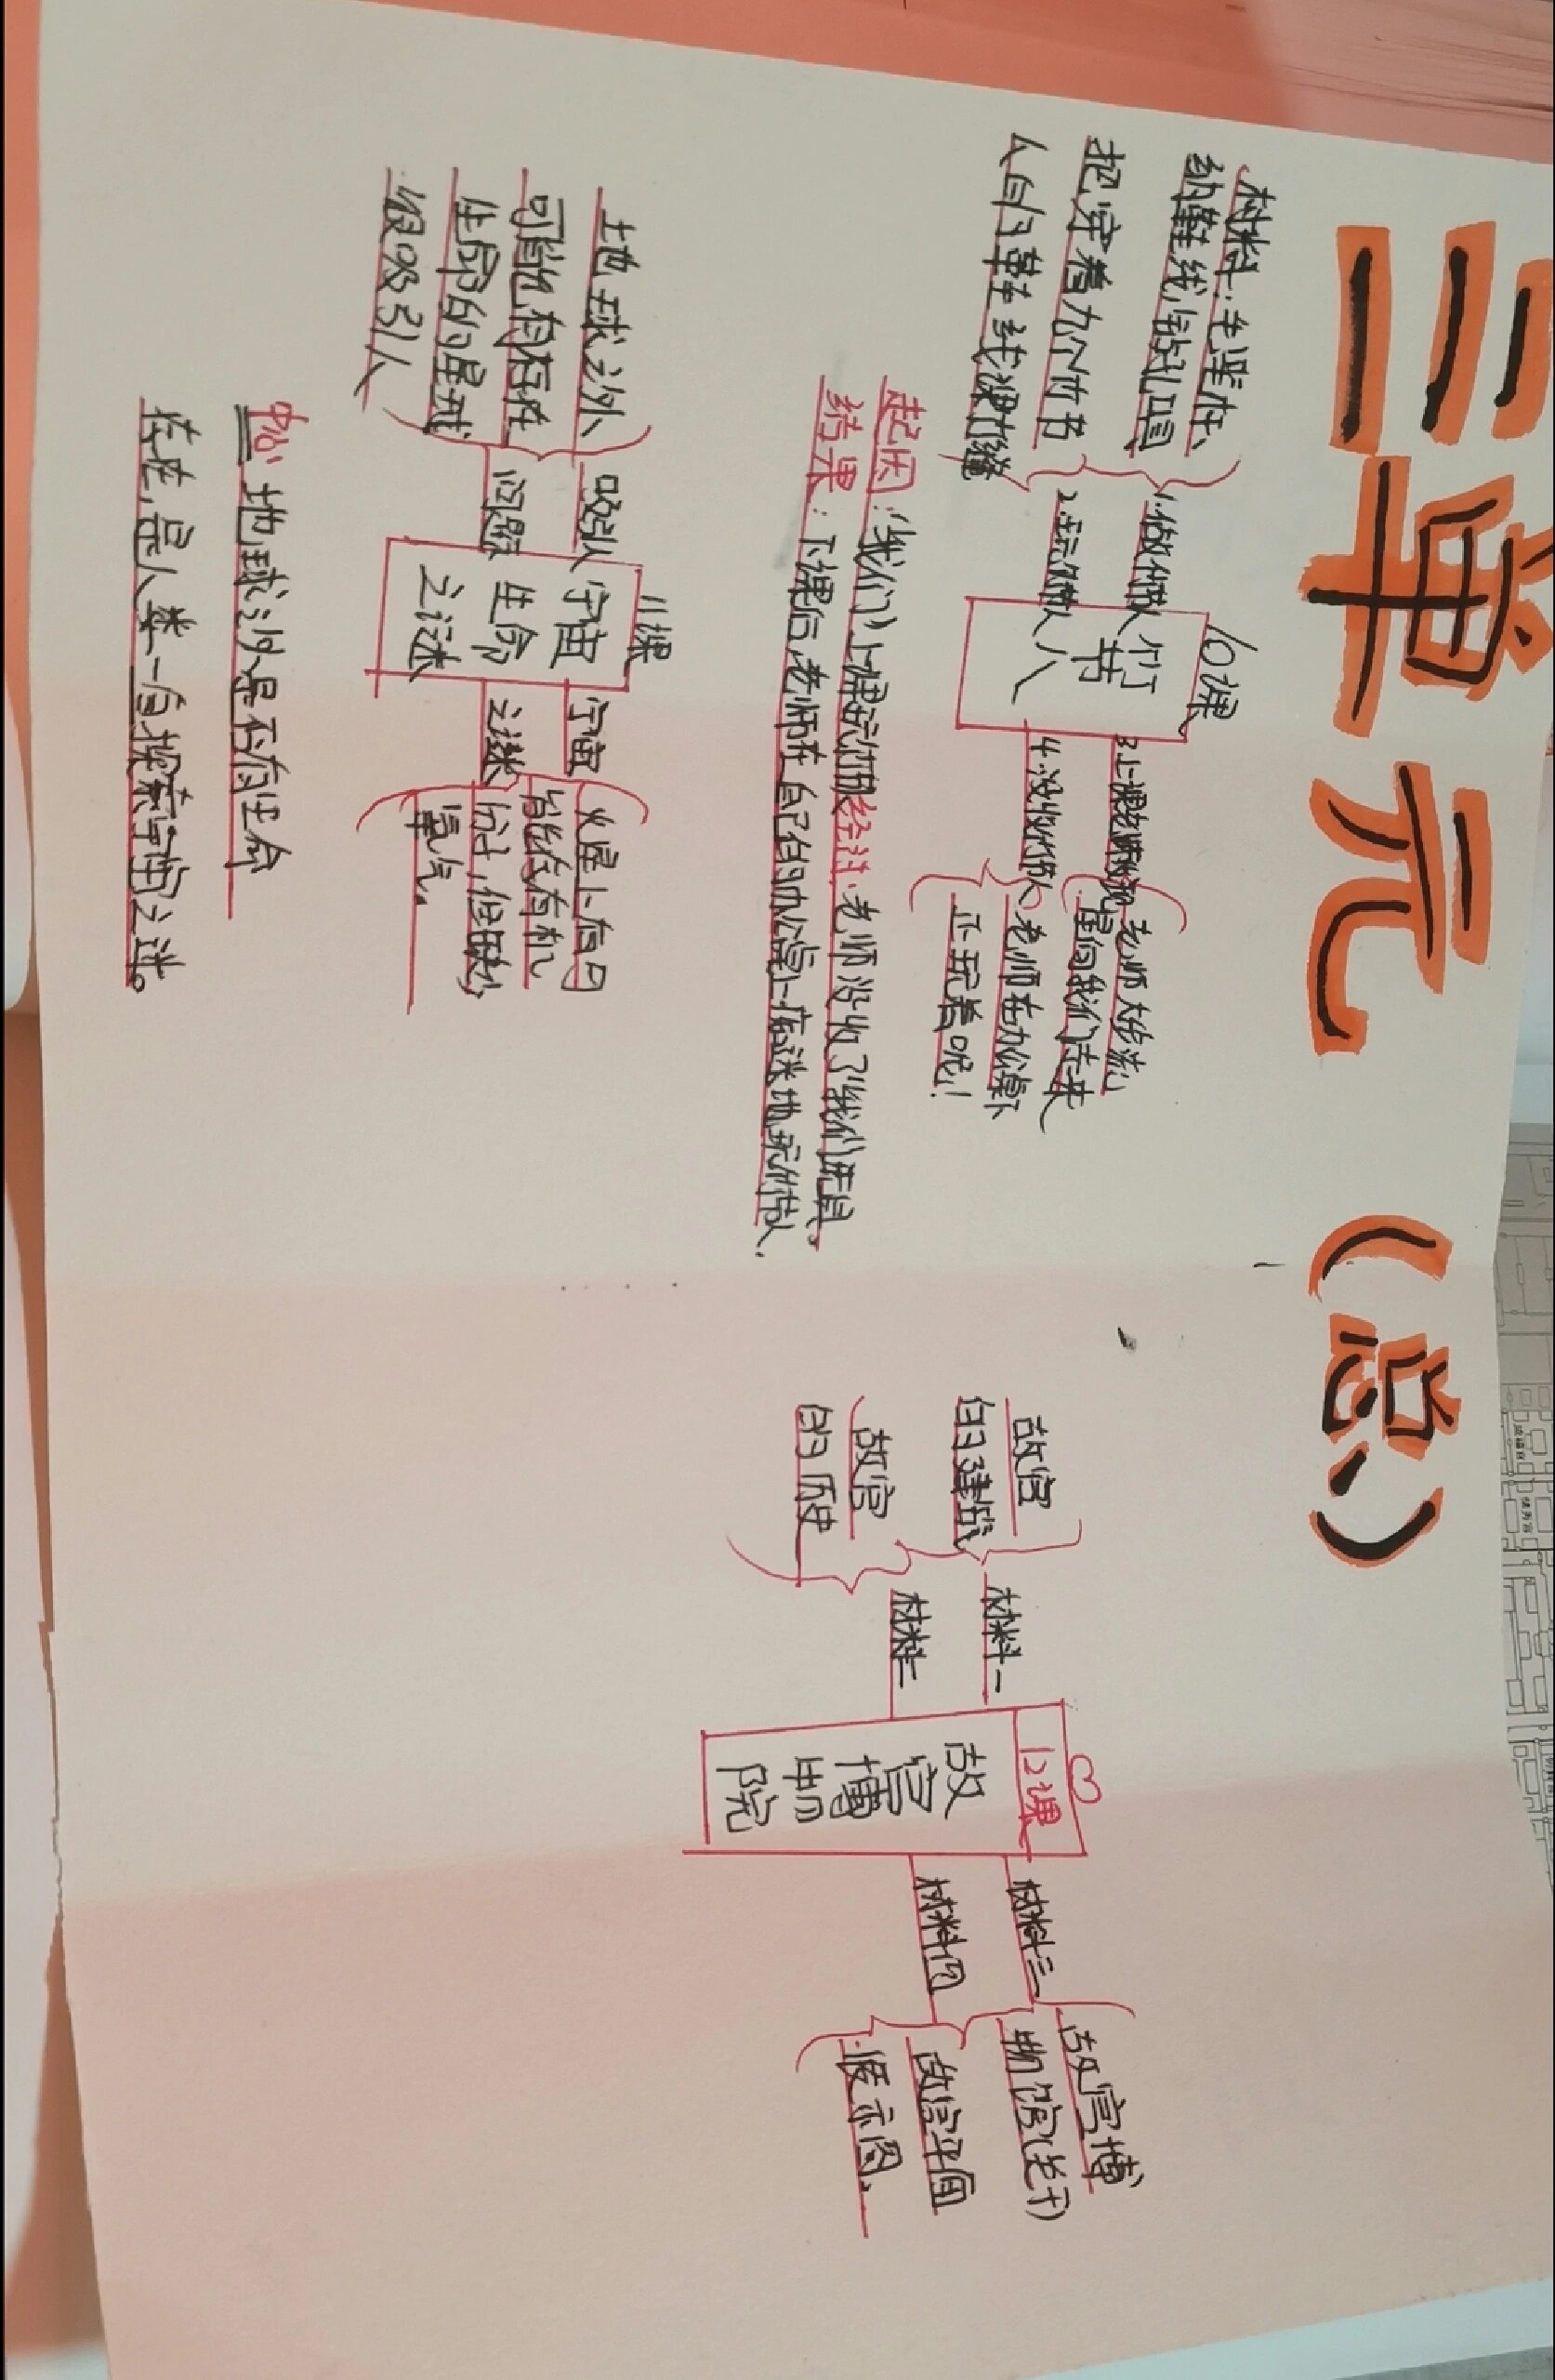 三单元（总）
10课
竹节人
1.做竹节人
材料：毛笔杆、
纳鞋线、钻孔工具
2.玩竹节人
把穿着九个竹节
人的鞋线
3.上课
老师大步流
星向我们走来
4.没收竹节人
老师在办公桌下
正玩着呢！
起因：我们上课玩竹节人
经过：老师没收了我们玩具。
结果：下课后，老师在自己的办公桌上痴迷地玩竹节人.
11课
宇宙
生命
之谜
吸引人
问题
地球之外
可能有存在
生命的星球
很吸引人
宇宙
之谜
火星上有可
能有机
分子，但缺少
氧气。
中心：地球之外是否有生命
存在，是人类一直探索宇宙之谜。
12课
故
宫
博
物
院
材料一
故宫
的建筑
材料二
故宫
的历史
材料三
故宫博
物馆(关于)
材料四
故宫平面
展示图。